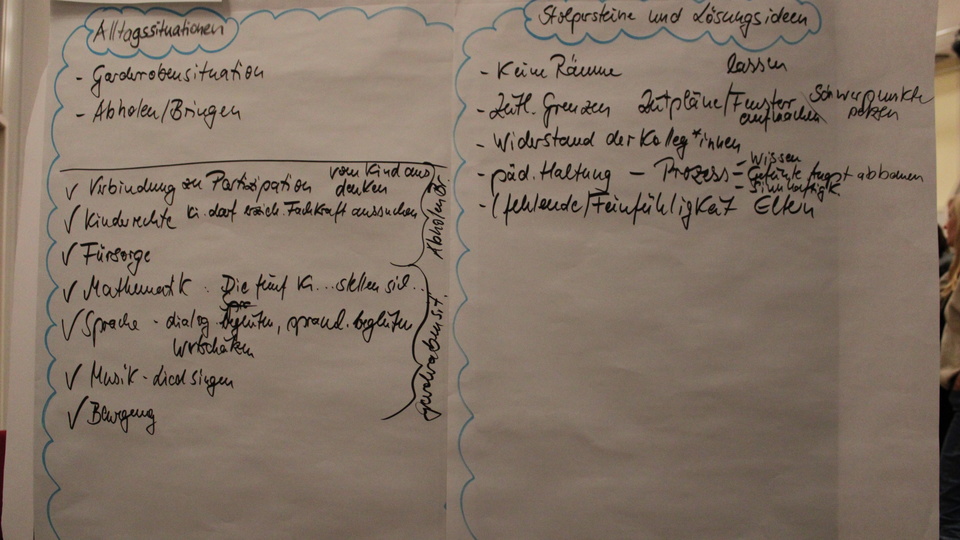 Alltagssituationen
- Garderobensituation
- Abholen/Bringen
✓ Verbindung zu Partizipation vom Kind aus
denken
✓ Kinderrechte Ki. darf versch. Fachkraft aussuchen
✓ Fürsorge
✓ Mathematik Die fünf Ki... stellen sich...
✓ Sprache - dialog. begleiten, sprachl. begleiten
Wortschätze
✓ Musik - Lied singen
✓ Bewegung
Abholen
Garderobensit.
Stolpersteine und Lösungsideen
- Keine Räume lassen
- Zeitl. Grenzen Zeitpläne/Fenster Schwerpunkte
aufmachen setzen
- Widerstand der Kolleg*innen
- Wissen
- päd. Haltung - Prozess - Gefühle Angst abbauen
- Sinnhaftigk.
- (fehlende) Feinfühligkeit Eltern